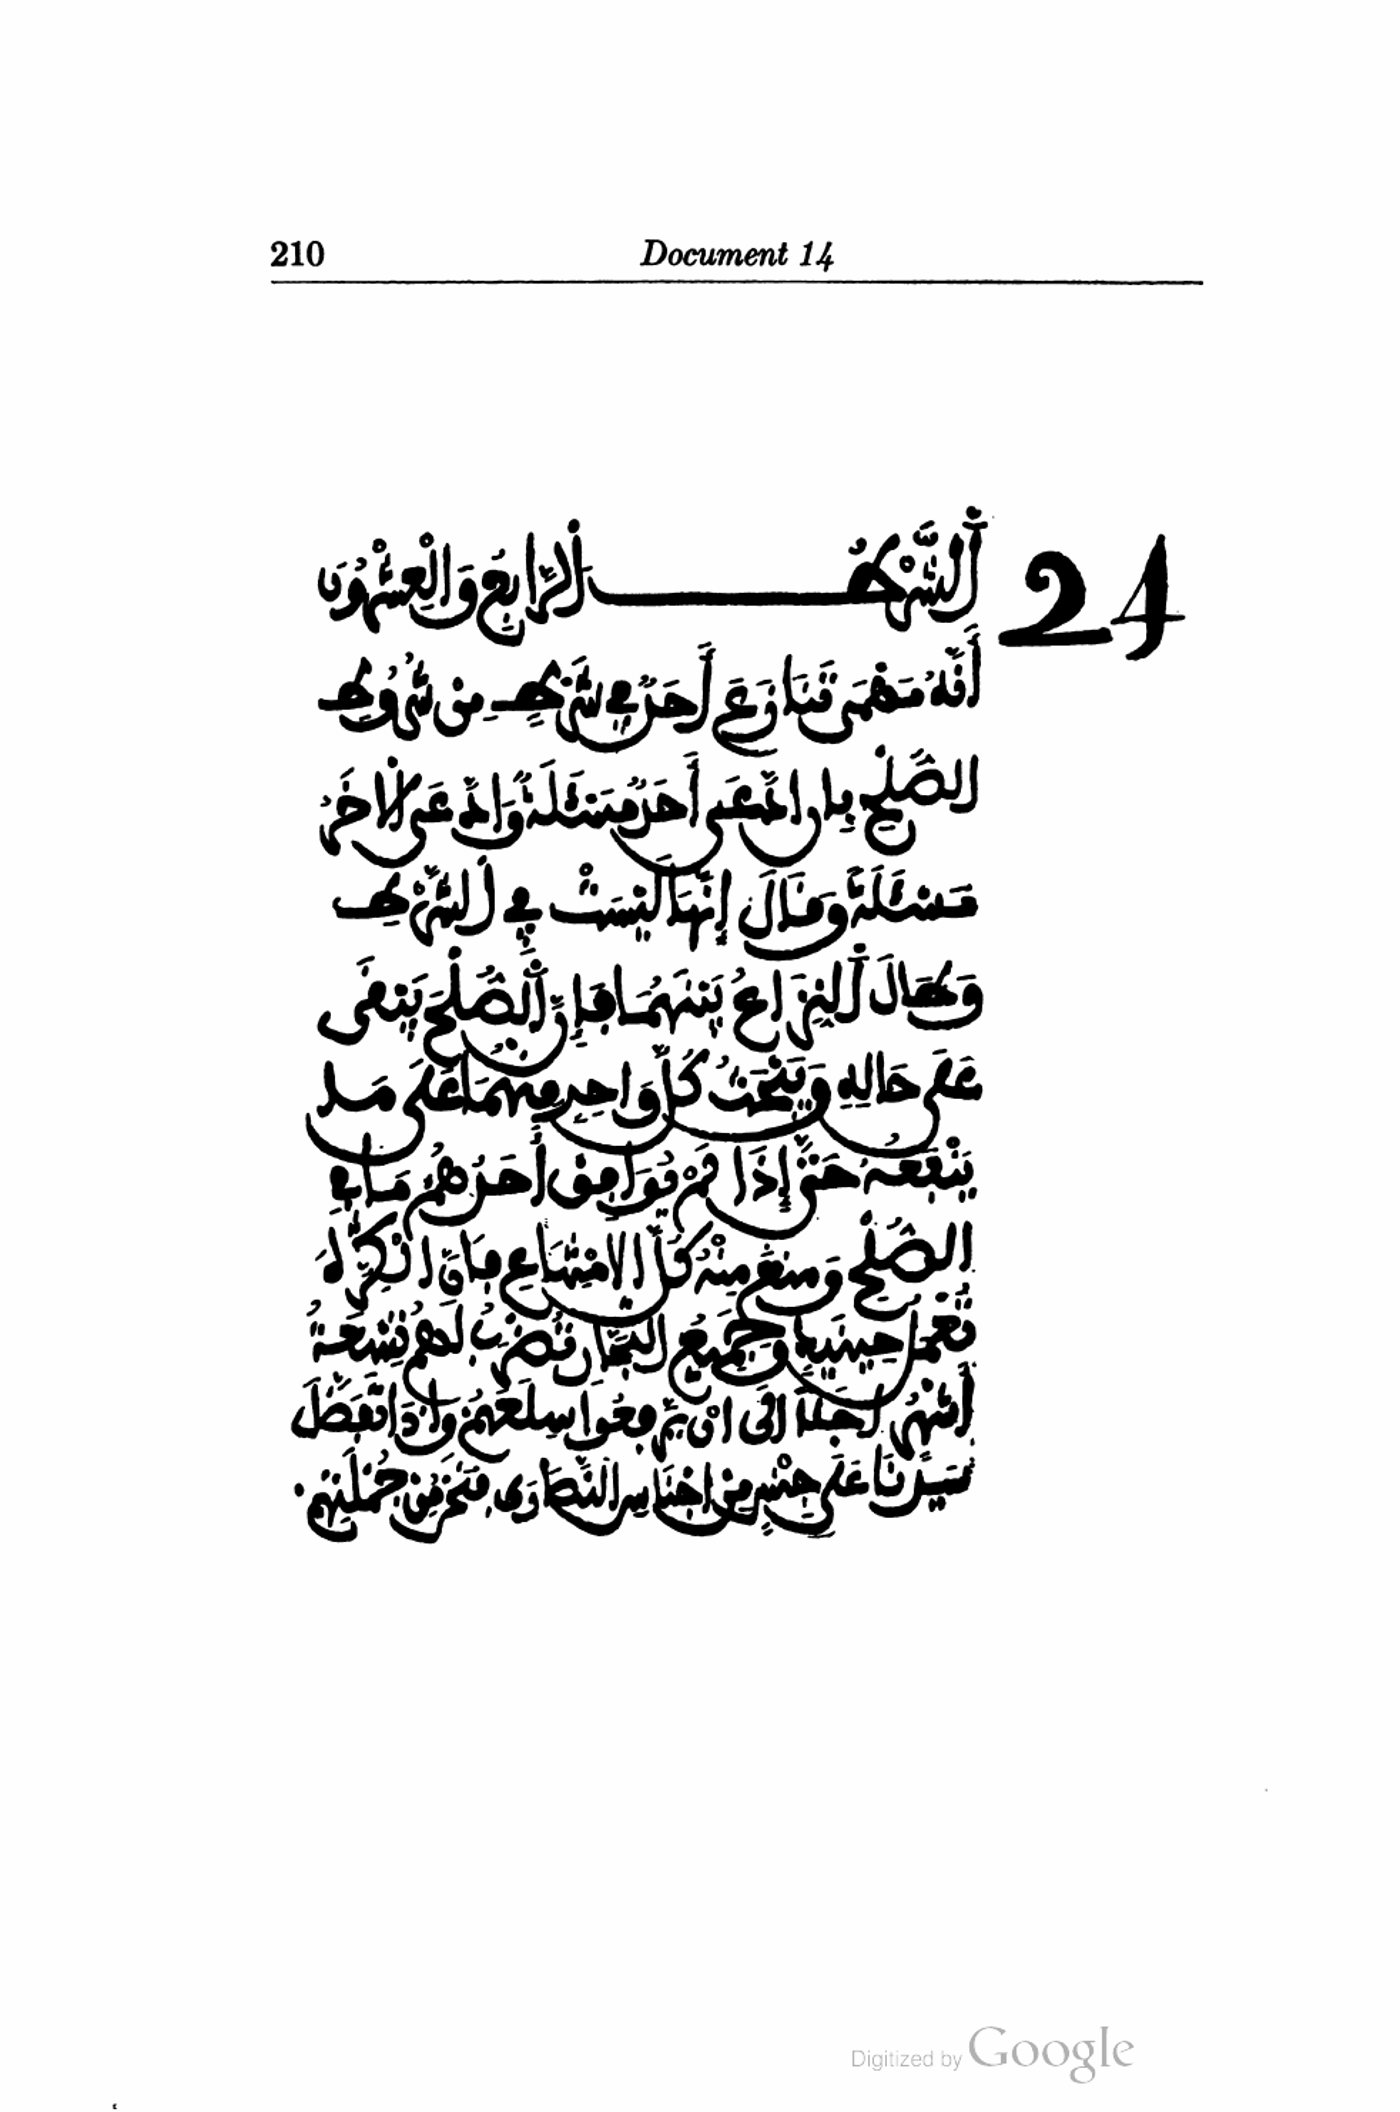 210 Document 14
24 اَلشَّرْطُ الرَّابِعُ وَالْعِشْرُونَ
أَنَّهُ مَهْمَى تَنَازَعَ أَحَدٌ فِي شَرْطٍ مِنْ شُرُوطِ
الصُّلْحِ بان ادَّعَى أَحَدٌ مَسْئَلَةً وَادَّعَى الْاخَرُ
مَسْئَلَةً وَقَالَ إِنَّهَا لَيْسَتْ فِي اَلشَّرْطِ
وَطَالَ اَلنِّزَاعُ بَيْنَهُمَا فَإِنَّ اَلصُّلْحَ يَبْقَى
عَلَى حَالِهِ وَيَبْحَثُ كُلُّ وَاحِدٍ مِنْهُمَا عَلَى مَا
يَنْفَعُهُ حَتَّى إِذَا لَمْ يُوَافِقْ أَحَدُهُمْ مَا فِي
الصُّلْحِ وَمنع مِنْهُ كُلَّ الِامْتِنَاعِ فَإنَّ
حِينَئِذٍ وَجَمِيعُ التُّجَّارِ تُضْرَبُ لَهُمْ تِسْعَةُ
أَشْهُرٍ أَجَلاً إلَى انْ يَرْفَعُوا سِلَعَهُمْ وَإذَا تَفَضَّلَ
سَيِّدُنَا عَلَى جِنْسٍ مِنْ اجْنَاسِ النَّصَارَى فَنَحْنُ مِنْ جُمْلَتِهِمْ.
Digitized by Google